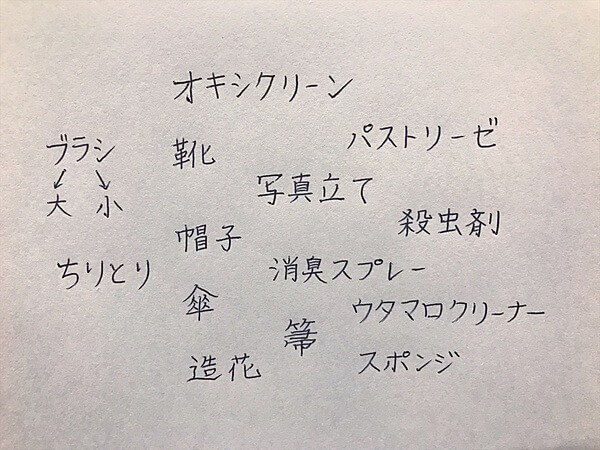 オキシクリーン
パストリーゼ
ブラシ
↙ ↘
大 小
靴
写真立て
殺虫剤
帽子
消臭スプレー
ちりとり
傘
ウタマロクリーナー
箒
造花
スポンジ